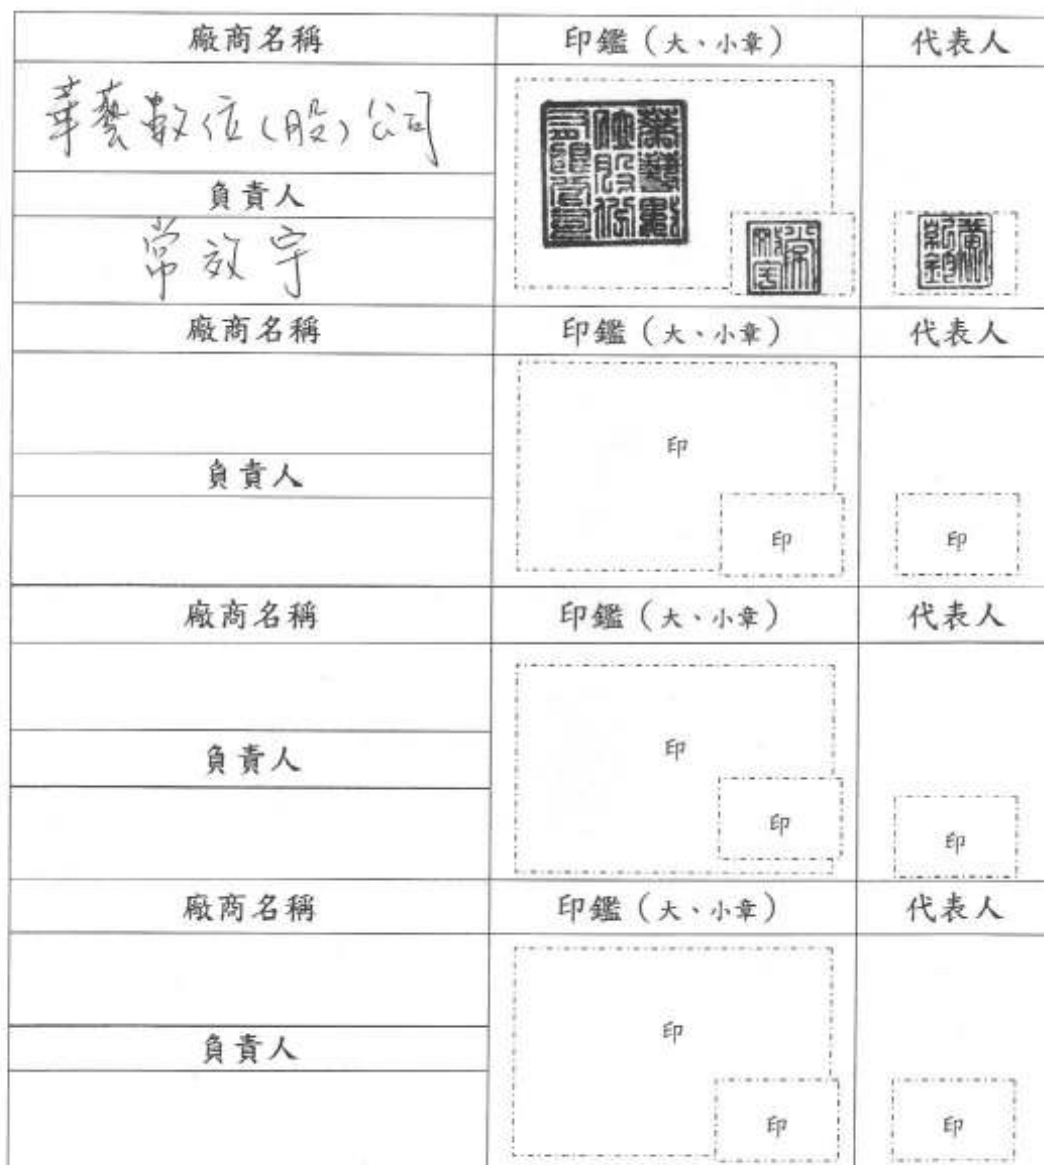 廠商名稱 印鑑（大、小章） 代表人
華藝數位（股）公司
負責人
常效宇
華藝數位股份有限公司
廠商名稱 印鑑（大、小章） 代表人
印
負責人
印 印
廠商名稱 印鑑（大、小章） 代表人
印
負責人
印 印
廠商名稱 印鑑（大、小章） 代表人
印
負責人
印 印